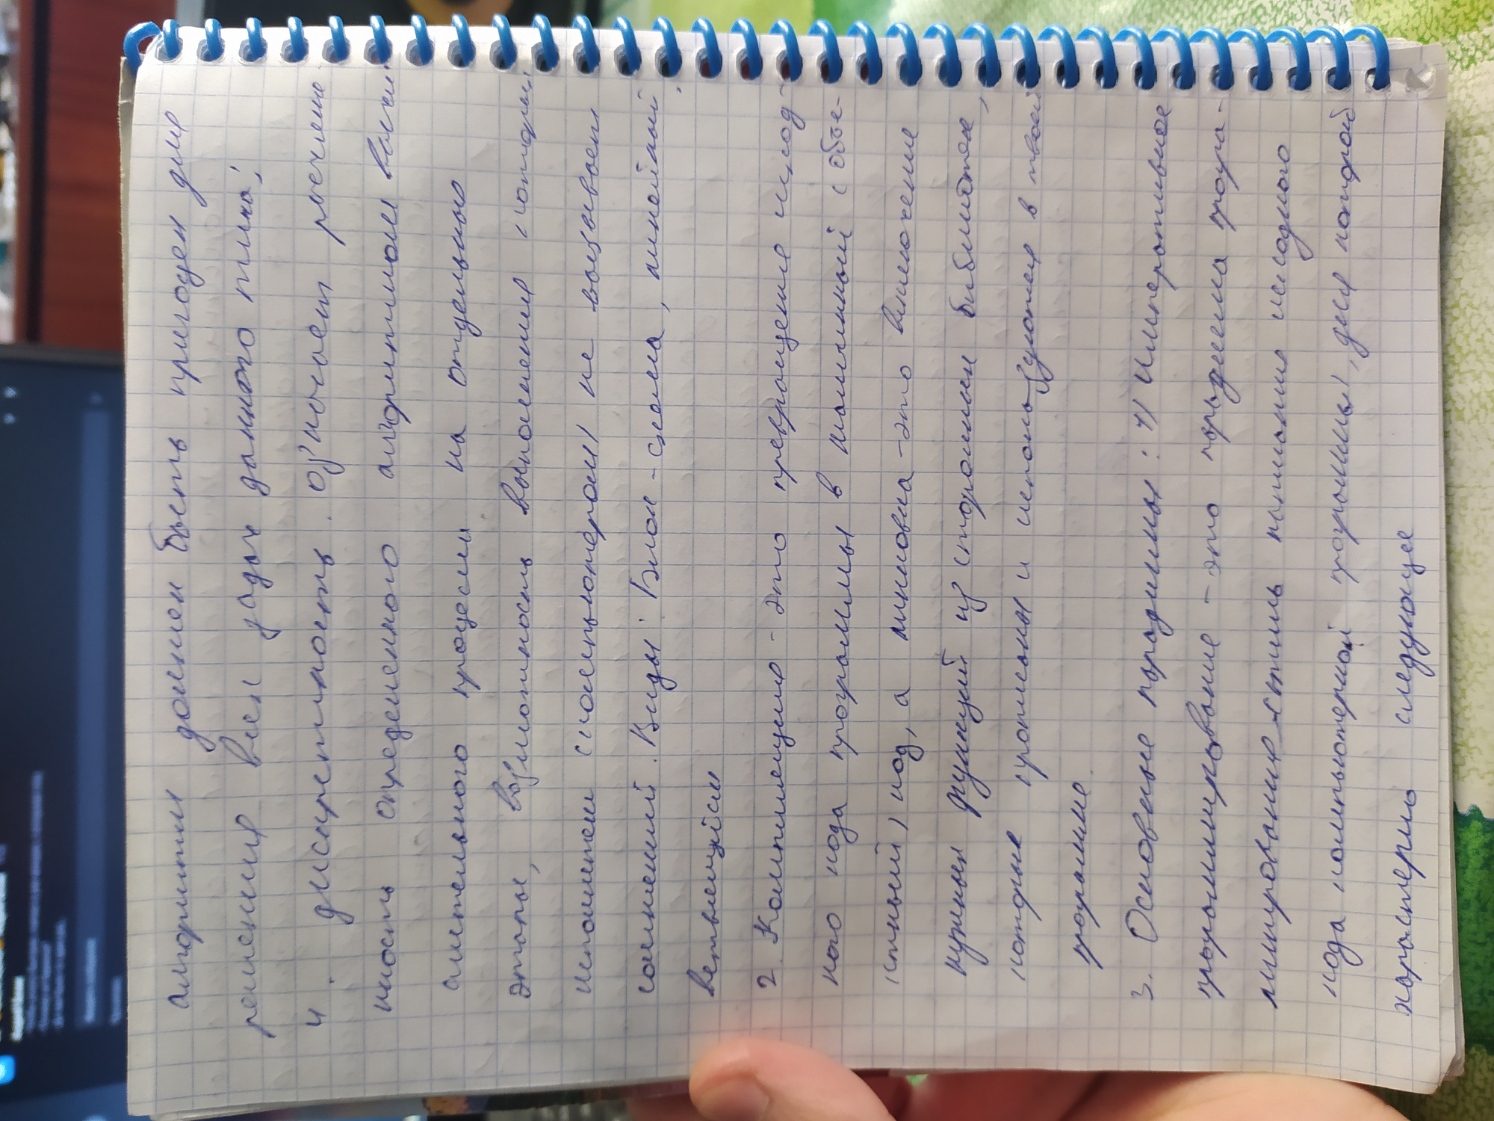 алгоритм должен быть пригоден для
решения всех задач данного типа;
4. дискретность. означает расчлене-
нность определенного алгоритмом вычи-
слительного процесса на отдельные
этапы, возможность выполнения которых
исполнителем (компьютером) не вызывает
сомнений. Виды: Блок-схема, линейный,
ветвящийся
2. Компиляция - это превращение исход-
ного кода программы в машинный (объе-
ктный) код, а линковка - это включение
нужных функций из сторонних библиотек,
которые прописаны и используются в твоей
программе.
3. Основные парадигмы: 1) Императивное
программирование - это парадигма програ-
ммирования стиль написания исходного
кода компьютерной программы, для которой
характерно следующее